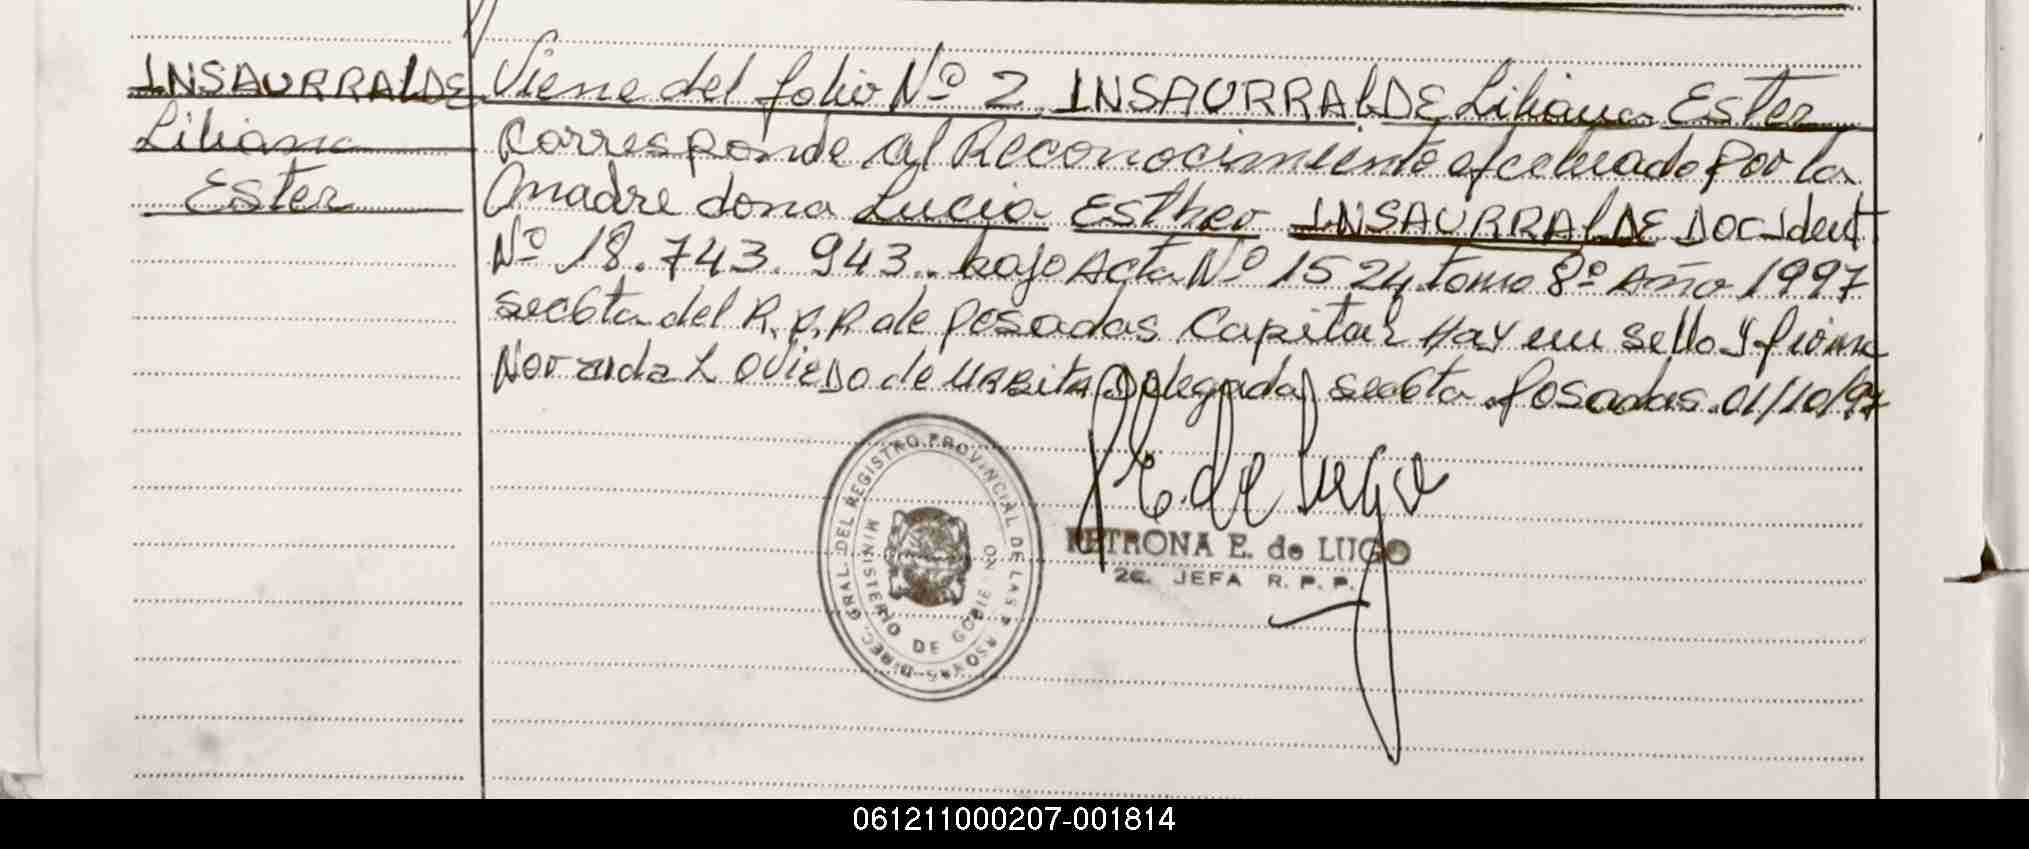 INSAURRALDE
Liliana
Ester
Viene del folio Nº 2 INSAURRALDE Liliana Ester
Corresponde al Reconocimiento efectuado por la
madre dona Lucia Esther INSAURRALDE Doc Ident
Nº 18.743.943.. bajo Acta Nº 1524 tomo 8º Año 1997
secc6ta del R.P.P de posadas Capital Hay un sello y firma
L Oviedo de URBITA Delegada secc6ta Posadas 01/10/97
DIREC. GRAL. DEL REGISTRO PROVINCIAL DE LAS PERSONAS
MINISTERIO DE GOBIERNO
PETRONA E. de LUGO
2a. JEFA R. P. P.
061211000207-001814